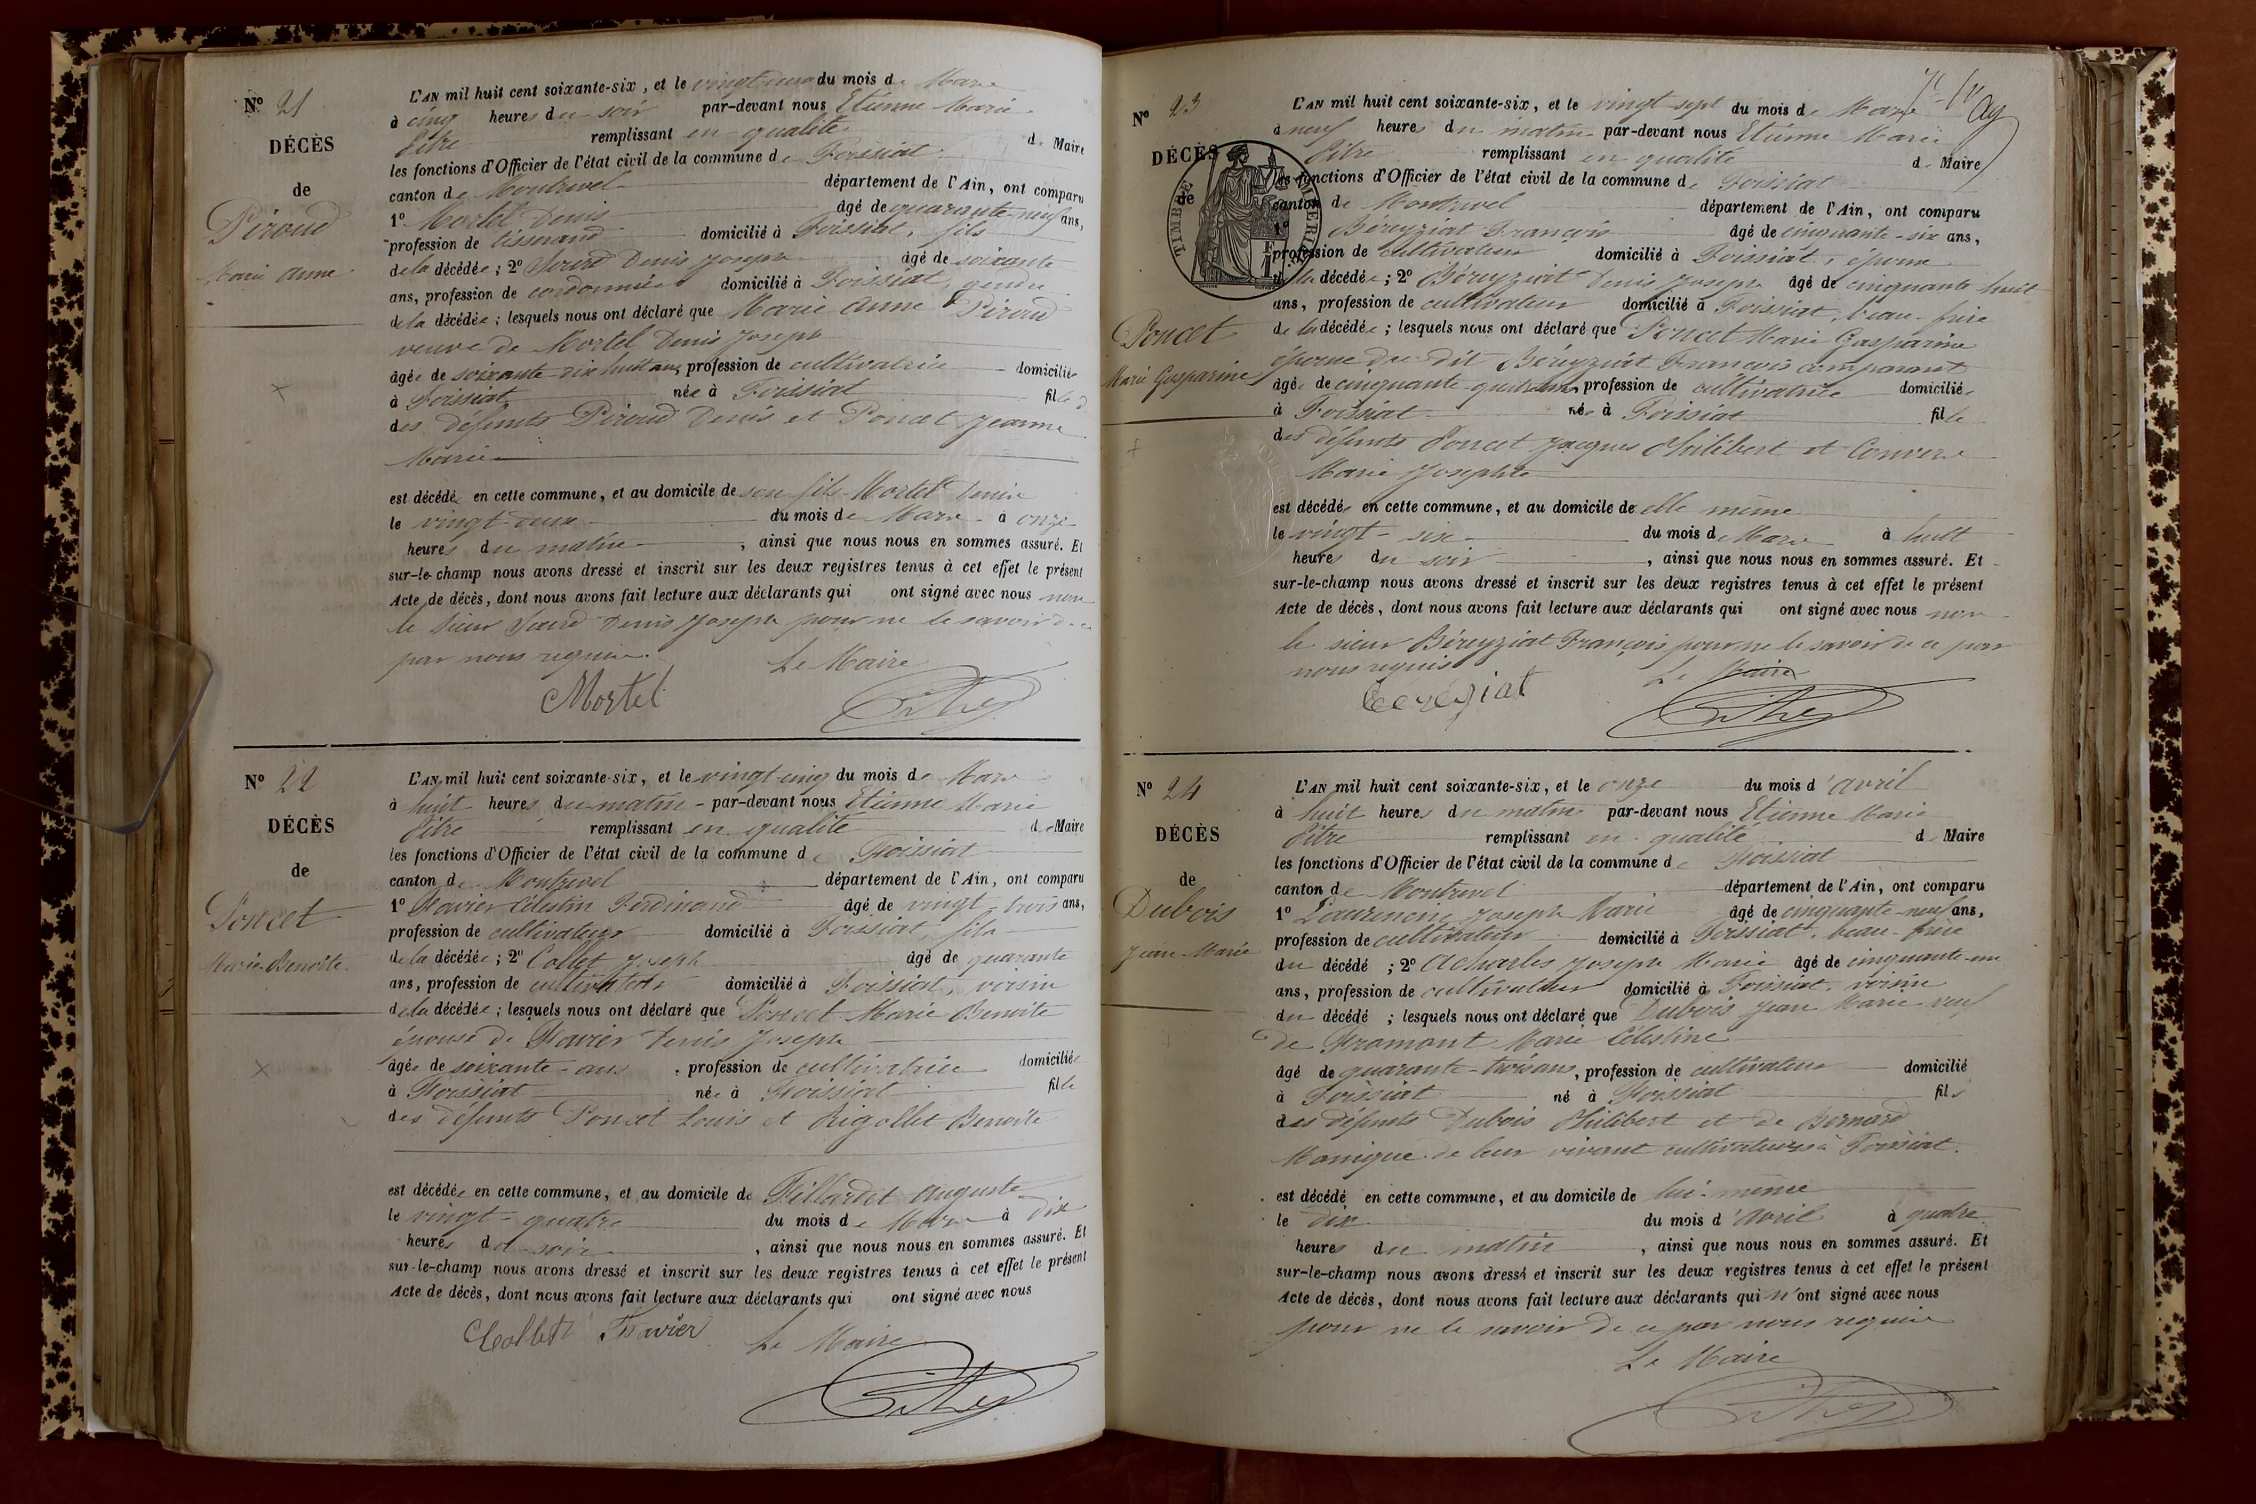 N° 21
DÉCÈS
de
Piroud
Marie Anne
L'AN mil huit cent soixante-six, et le vingt-deux du mois de Mars
à cinq heures du soir par-devant nous Etienne Marie
Pitre remplissant en qualité de Maire
les fonctions d'Officier de l'état civil de la commune de Foissiat
canton de Montrevel département de l'Ain, ont comparu
1° Mortel Denis âgé de quarante-neuf ans,
profession de tisserand domicilié à Foissiat, fils
de la décédée; 2° Denis Joseph âgé de soixante
ans, profession de cordonnier domicilié à Foissiat, gendre
de la décédée; lesquels nous ont déclaré que Marie Anne Piroud
veuve de Mortel Denis Joseph
âgée de soixante-dix huit ans profession de cultivatrice domiciliée
à Foissiat née à Foissiat fille d
des défunts Piroud Denis et Poncet Jeanne
Marie
est décédée en cette commune, et au domicile de son fils Mortel Denis
le vingt-deux du mois de Mars à onze
heures du matin, ainsi que nous nous en sommes assuré. Et
sur-le-champ nous avons dressé et inscrit sur les deux registres tenus à cet effet le présent
Acte de décès, dont nous avons fait lecture aux déclarants qui ont signé avec nous non
le sieur Denis Joseph pour ne le savoir de ce
par nous requis. Le Maire
Mortel Pitre
N° 22
DÉCÈS
de
Poncet
Marie-Benoite
L'AN mil huit cent soixante-six, et le vingt-cinq du mois de Mars
à huit heures du matin par-devant nous Etienne Marie
Pitre remplissant en qualité de Maire
les fonctions d'Officier de l'état civil de la commune de Foissiat
canton de Montrevel département de l'Ain, ont comparu
1° Favier Célestin Ferdinand âgé de vingt-trois ans,
profession de cultivateur domicilié à Foissiat, fils
de la décédée; 2° Collet Joseph âgé de quarante
ans, profession de cultivateur domicilié à Foissiat, voisin
de la décédée; lesquels nous ont déclaré que Poncet Marie Benoite
épouse de Favier Denis Joseph
âgée de soixante-ans, profession de cultivatrice domiciliée
à Foissiat née à Foissiat fille
des défunts Poncet Louis et Rigollet Benoite
est décédée en cette commune, et au domicile de Fillardet Auguste
le vingt-quatre du mois de Mars à dix
heures du soir, ainsi que nous nous en sommes assuré. Et
sur-le-champ nous avons dressé et inscrit sur les deux registres tenus à cet effet le présent
Acte de décès, dont nous avons fait lecture aux déclarants qui ont signé avec nous
Collet Favier Le Maire
Pitre
N° 23
DÉCÈS
de
Poncet
Marie Gasparine
TIMBRE
L'AN mil huit cent soixante-six, et le vingt-sept du mois de Mars
à neuf heures du matin par-devant nous Etienne Marie
Pitre remplissant en qualité de Maire
les fonctions d'Officier de l'état civil de la commune de Foissiat
canton de Montrevel département de l'Ain, ont comparu
1° Béreyziat François âgé de cinquante-six ans,
profession de cultivateur domicilié à Foissiat, époux
de la décédée; 2° Béreyziat Denis Joseph âgé de cinquante-huit
ans, profession de cultivateur domicilié à Foissiat, beau-frère
de la décédée; lesquels nous ont déclaré que Poncet Marie Gasparine
épouse du dit Béreyziat François comparant
âgée de cinquante-quatre ans, profession de cultivatrice domiciliée
à Foissiat née à Foissiat fille
des défunts Poncet Jacques Philibert et Convers
Marie Josephte
est décédée en cette commune, et au domicile de elle même
le vingt-six du mois de Mars à huit
heures du soir, ainsi que nous nous en sommes assuré. Et
sur-le-champ nous avons dressé et inscrit sur les deux registres tenus à cet effet le présent
Acte de décès, dont nous avons fait lecture aux déclarants qui ont signé avec nous non
le sieur Béreyziat François pour ne le savoir de ce par
nous requis Le Maire
Pitre
N° 24
DÉCÈS
de
Dubois
Jean Marie
L'AN mil huit cent soixante-six, et le onze du mois d'avril
à huit heures du matin par-devant nous Etienne Marie
Pitre remplissant en qualité de Maire
les fonctions d'Officier de l'état civil de la commune de Foissiat
canton de Montrevel département de l'Ain, ont comparu
1° Joseph Marie âgé de cinquante-neuf ans,
profession de cultivateur domicilié à Foissiat, beau-frère
du décédé; 2° Acharles Joseph Marie âgé de cinquante-un
ans, profession de cultivateur domicilié à Foissiat, voisin
du décédé; lesquels nous ont déclaré que Dubois Jean Marie veuf
de Fromont Marie Célestine
âgé de quarante-trois ans, profession de cultivateur domicilié
à Foissiat né à Foissiat fils
des défunts Dubois Philibert et de Bernard
Monique de leur vivant cultivateurs à Foissiat.
est décédé en cette commune, et au domicile de lui-même
le dix du mois d'avril à quatre
heures du matin, ainsi que nous nous en sommes assuré. Et
sur-le-champ nous avons dressé et inscrit sur les deux registres tenus à cet effet le présent
Acte de décès, dont nous avons fait lecture aux déclarants qui n'ont signé avec nous
pour ne le savoir de ce par nous requis
Le Maire
Pitre